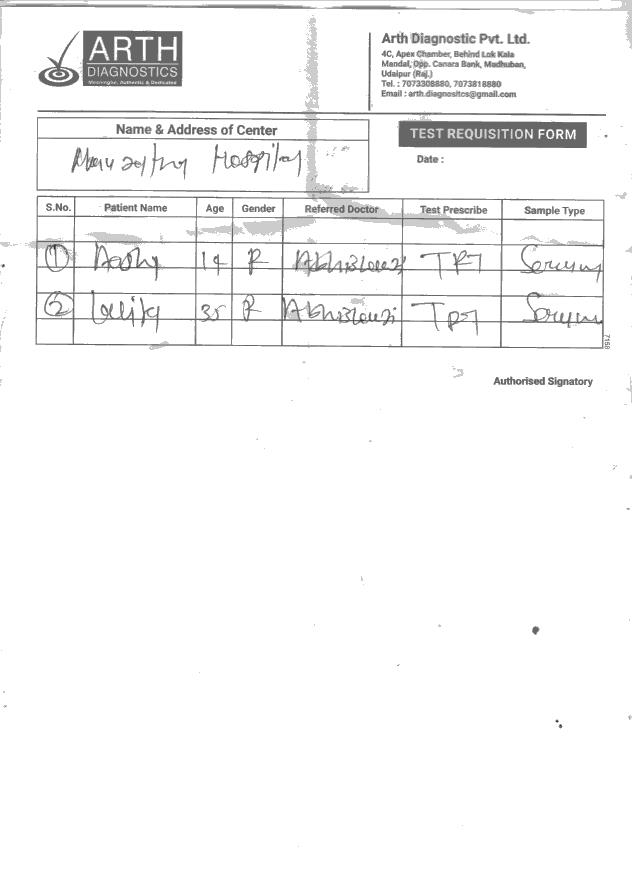 ARTH
DIAGNOSTICS
Meaningful, Authentic & Dedicated
Arth Diagnostic Pvt. Ltd.
4C, Apex Chamber, Behind Lok Kala
Mandal, Opp. Canara Bank, Madhuban,
Udaipur (Raj.)
Tel. : 7073308880, 7073818880
Email : arth.diagnositcs@gmail.com
Name & Address of Center
TEST REQUISITION FORM
Hospital
Date :
S.No. Patient Name Age Gender Referred Doctor Test Prescribe Sample Type
1 F Serum
2 Lalita 35 F Serum
7150
Authorised Signatory